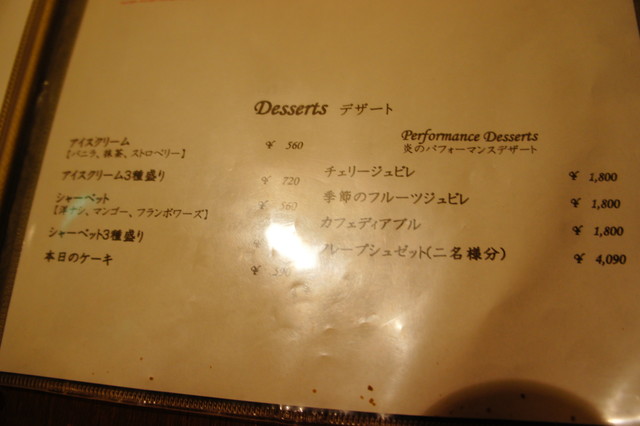 Desserts デザート
アイスクリーム ¥ 560
【バニラ、抹茶、ストロベリー】
アイスクリーム3種盛り ¥ 720
シャーベット ¥ 560
【洋ナシ、マンゴー、フランボワーズ】
シャーベット3種盛り
本日のケーキ ¥
Performance Desserts
炎のパフォーマンスデザート
チェリージュビレ ¥ 1,800
季節のフルーツジュビレ ¥ 1,800
カフェディアブル ¥ 1,800
クレープシュゼット(二名様分) ¥ 4,090